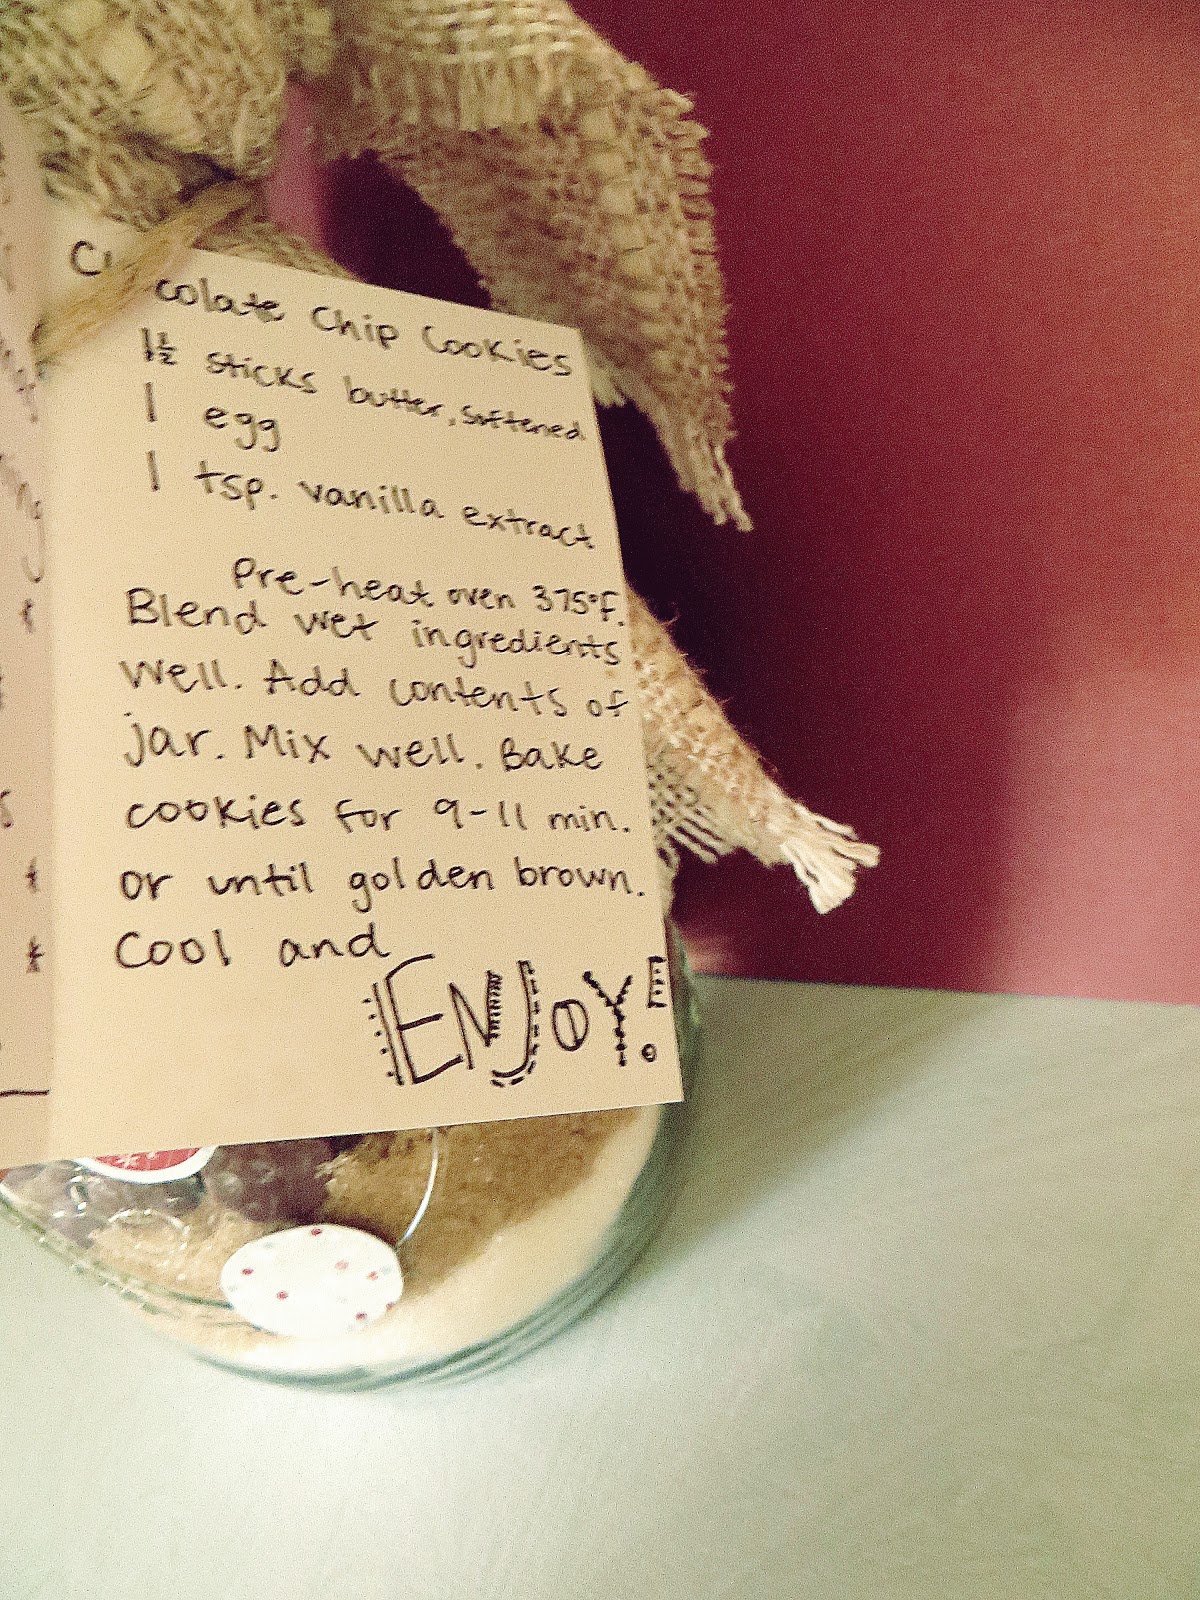 Chocolate Chip Cookies
1½ sticks butter, softened
1 egg
1 tsp. vanilla extract
Pre-heat oven 375°F.
Blend wet ingredients
well. Add contents of
jar. Mix well. Bake
cookies for 9-11 min.
or until golden brown.
Cool and
ENJOY!